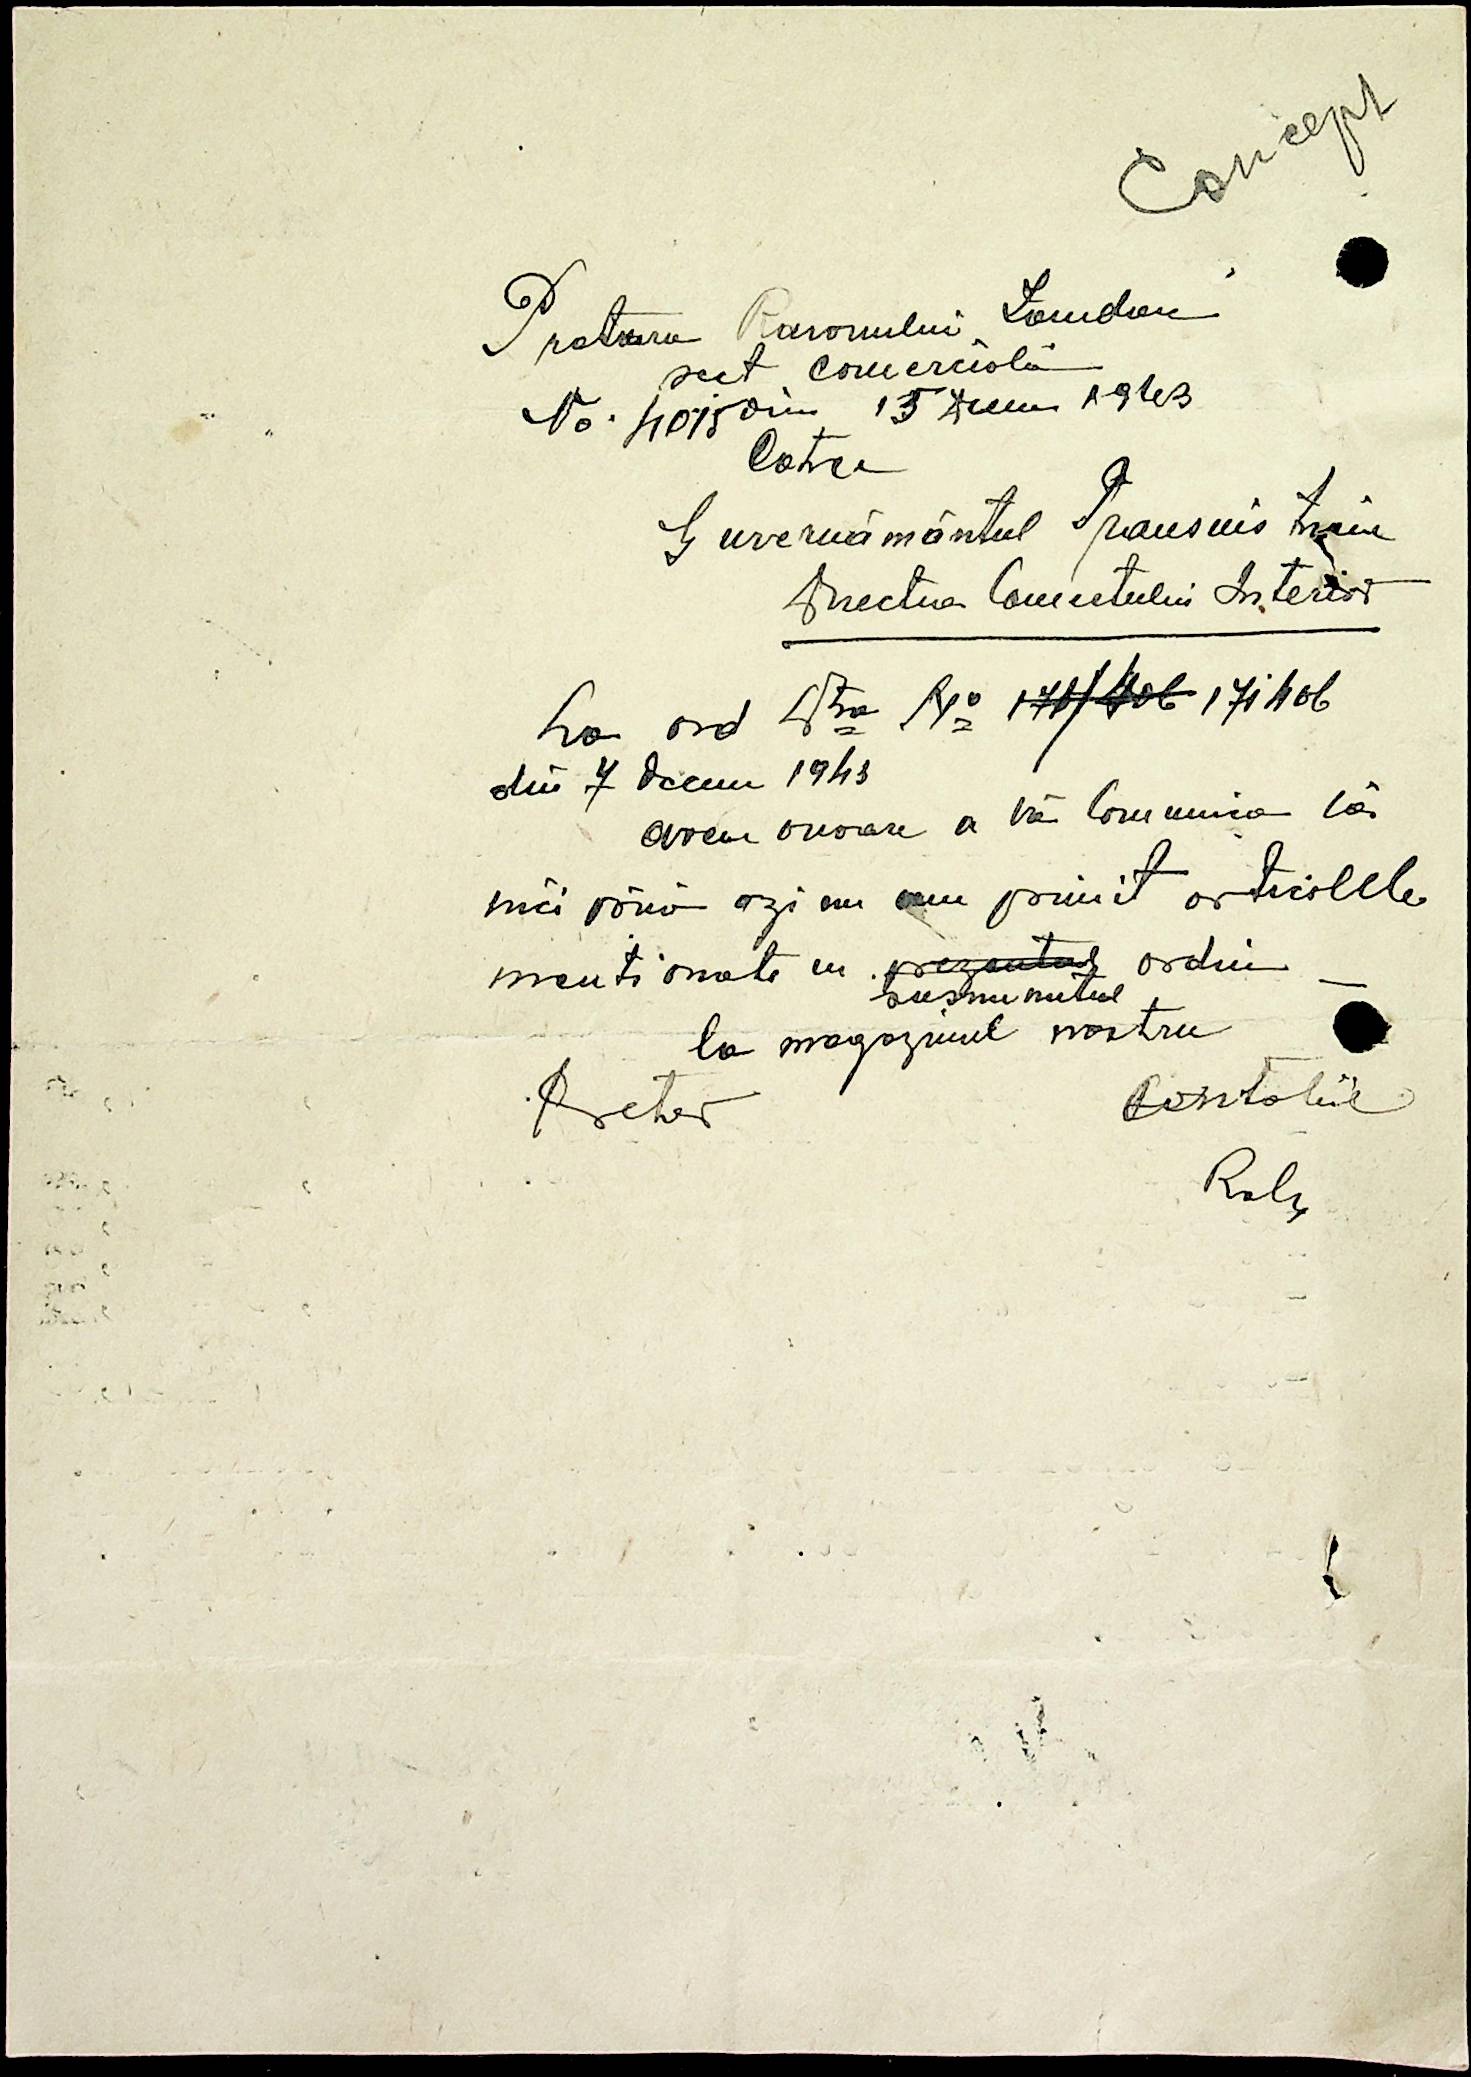 Concept
Pretura Raionului Landau
sect comercială
No. 4015 din 15 Decem 1943
Catre
Guvernământul Transnistriei
Directia Comertului Interior
La ord Dtra No 171/406 171406
din 7 Decem 1943
avem onoare a vă Comunica că
nici până azi nu am primit articolele
mentionate in prezentul ordin
susnumitul
la magazinul nostru
Pretor Contabil